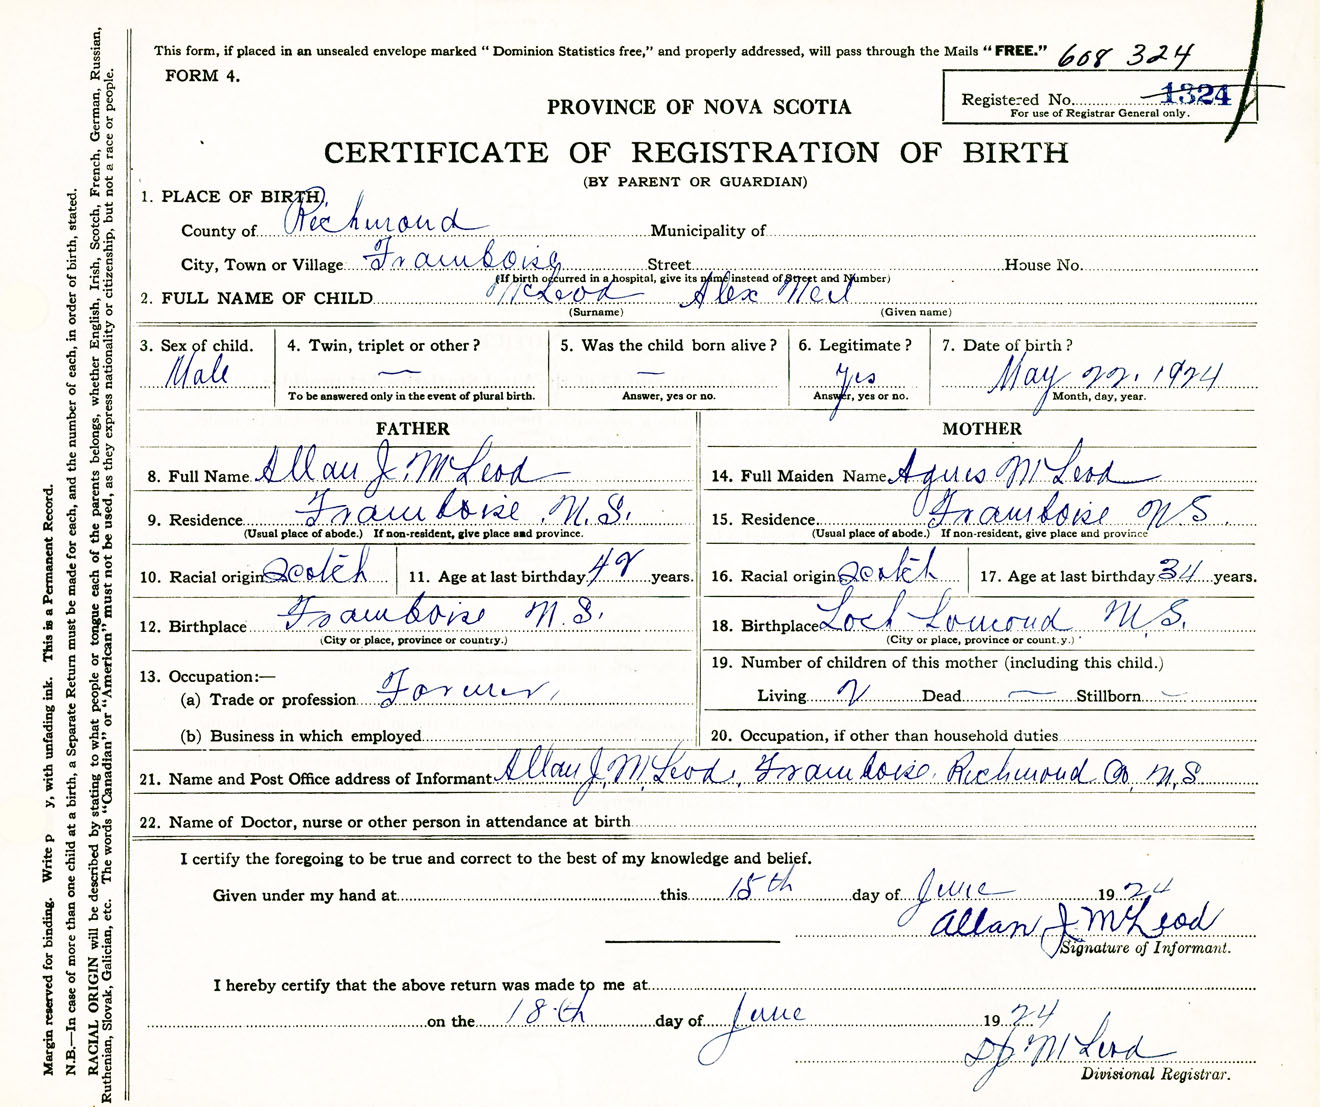 This form, if placed in an unsealed envelope marked " Dominion Statistics free," and properly addressed, will pass through the Mails "FREE." 608 324
FORM 4.
Registered No. 1324
For use of Registrar General only.
PROVINCE OF NOVA SCOTIA
CERTIFICATE OF REGISTRATION OF BIRTH
(BY PARENT OR GUARDIAN)
1. PLACE OF BIRTH,
County of Richmond Municipality of
City, Town or Village Framboise Street House No.
(If birth occurred in a hospital, give its name instead of Street and Number)
2. FULL NAME OF CHILD McLeod Alex Neil
(Surname) (Given name)
3. Sex of child. 4. Twin, triplet or other? 5. Was the child born alive? 6. Legitimate? 7. Date of birth?
Male — — yes May 22, 1924
To be answered only in the event of plural birth. Answer, yes or no. Answer, yes or no. Month, day, year.
FATHER MOTHER
8. Full Name Allan J. McLeod 14. Full Maiden Name Agnes McLeod
9. Residence Framboise N.S. 15. Residence Framboise N S
(Usual place of abode.) If non-resident, give place and province. (Usual place of abode.) If non-resident, give place and province
10. Racial origin Scotch 11. Age at last birthday 42 years. 16. Racial origin Scotch 17. Age at last birthday 34 years.
12. Birthplace Framboise N.S. 18. Birthplace Loch Lomond N.S.
(City or place, province or country.) (City or place, province or count.y.)
13. Occupation:— 19. Number of children of this mother (including this child.)
(a) Trade or profession Farmer, Living 2 Dead — Stillborn —
(b) Business in which employed 20. Occupation, if other than household duties
21. Name and Post Office address of Informant Allan J. McLeod, Framboise, Richmond Co, N.S
22. Name of Doctor, nurse or other person in attendance at birth
I certify the foregoing to be true and correct to the best of my knowledge and belief.
Given under my hand at this 15th day of June 1924
Allan J. McLeod
Signature of Informant.
I hereby certify that the above return was made to me at
on the 18th day of June 1924
McLeod
Divisional Registrar.
Margin reserved for binding. Write p y, with unfading ink. This is a Permanent Record.
N.B.—In case of more than one child at a birth, a Separate Return must be made for each, and the number of each, in order of birth, stated.
RACIAL ORIGIN will be described by stating to what people or tongue each of the parents belongs, whether English, Irish, Scotch, French, German, Russian,
Ruthenian, Slovak, Galician, etc. The words "Canadian" or "American" must not be used, as they express nationality or citizenship, but not a race or people.